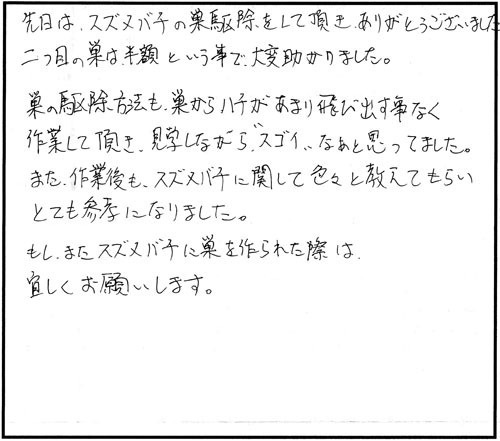 先日は、スズメバチの巣駆除をして頂き、ありがとうございました
二つ目の巣は半額という事で、大変助かりました。
巣の駆除方法も、巣からハチがあまり飛び出す事なく
作業して頂き、見学しながら〝スゴイ〟なぁと思ってました。
また、作業後も、スズメバチに関して色々と教えてもらい
とても参考になりました。
もし、またスズメバチに巣を作られた際は、
宜しくお願いします。